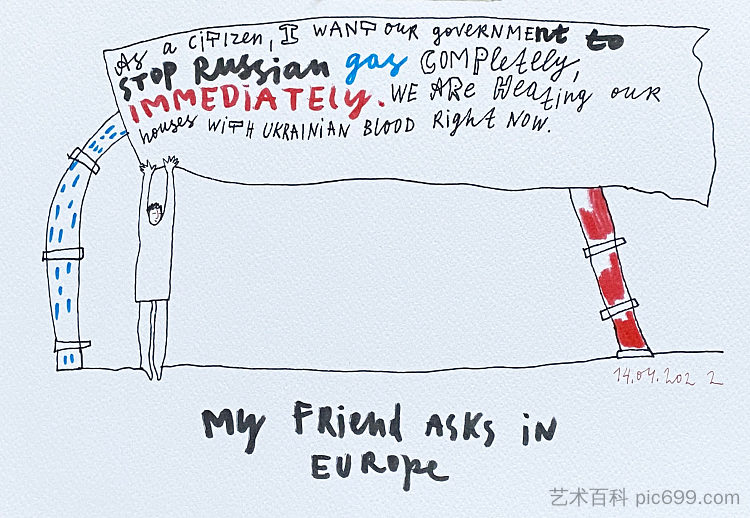 As a CiTIZen, I WANT OUR GOVERNMEnt to
STOP RUSSian gas COMPletely,
IMMEDiATELy. WE ARe Heating OUR
houses WiTH UKRAINIAN BLOOD Right NOW.
14.04.2022
My FRiend ASKS iN
EUROPe
艺术百科 pic699.com